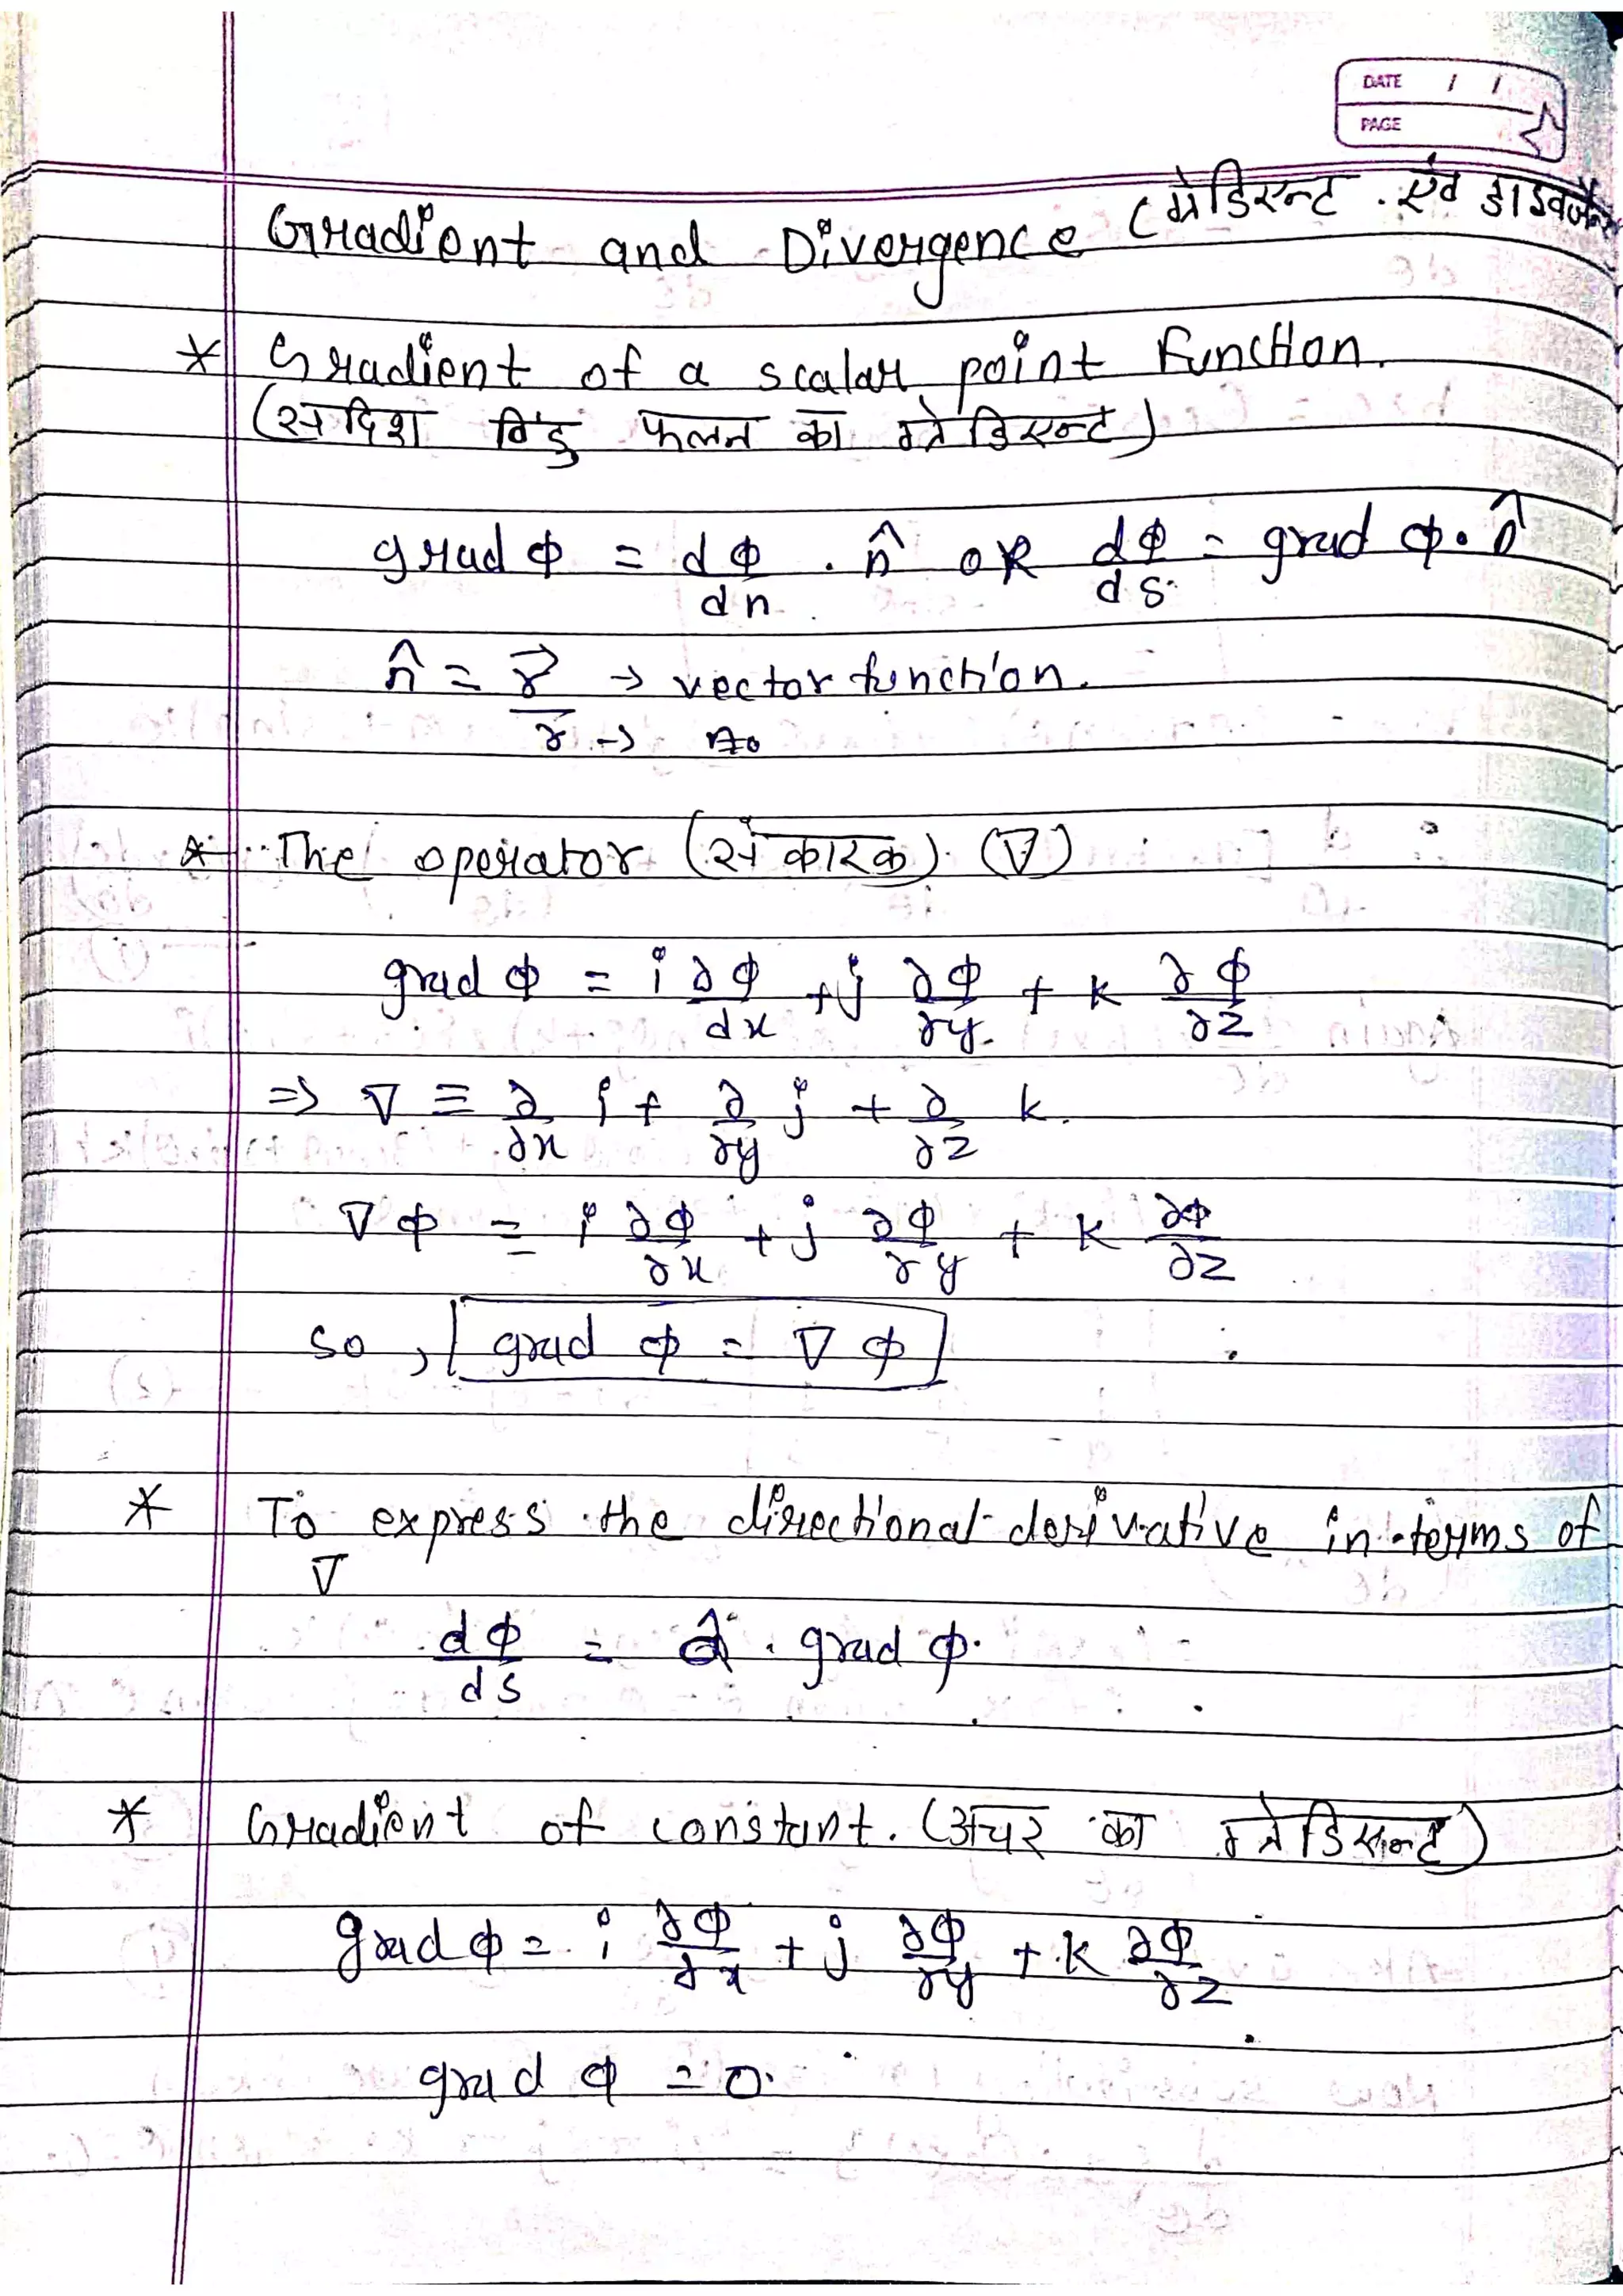 DATE / /
PAGE
Gradient and Divergence (ग्रेडिएन्ट एवं डाइवर्जेन्स
* Gradient of a scalar point function.
(संदिश बिंदु फलन का ग्रेडिएन्ट)
grad ϕ = dϕ/dn . n̂ OR dϕ/ds = grad ϕ . n̂
n̂ = r⃗/r → vector function.
r → no
* The operator (संकारक) (∇)
grad ϕ = i ∂ϕ/dx + j ∂ϕ/∂y + k ∂ϕ/∂z
⇒ ∇ ≡ ∂/∂x i + ∂/∂y j + ∂/∂z k.
∇ϕ = i ∂ϕ/∂x + j ∂ϕ/∂y + k ∂ϕ/∂z
so, grad ϕ = ∇ϕ
* To express the directional derivative in terms of
∇
dϕ/ds = â . grad ϕ.
* Gradient of constant. (अचर का ग्रेडिएन्ट)
grad ϕ = i ∂ϕ/∂x + j ∂ϕ/∂y + k ∂ϕ/∂z
grad ϕ = 0.